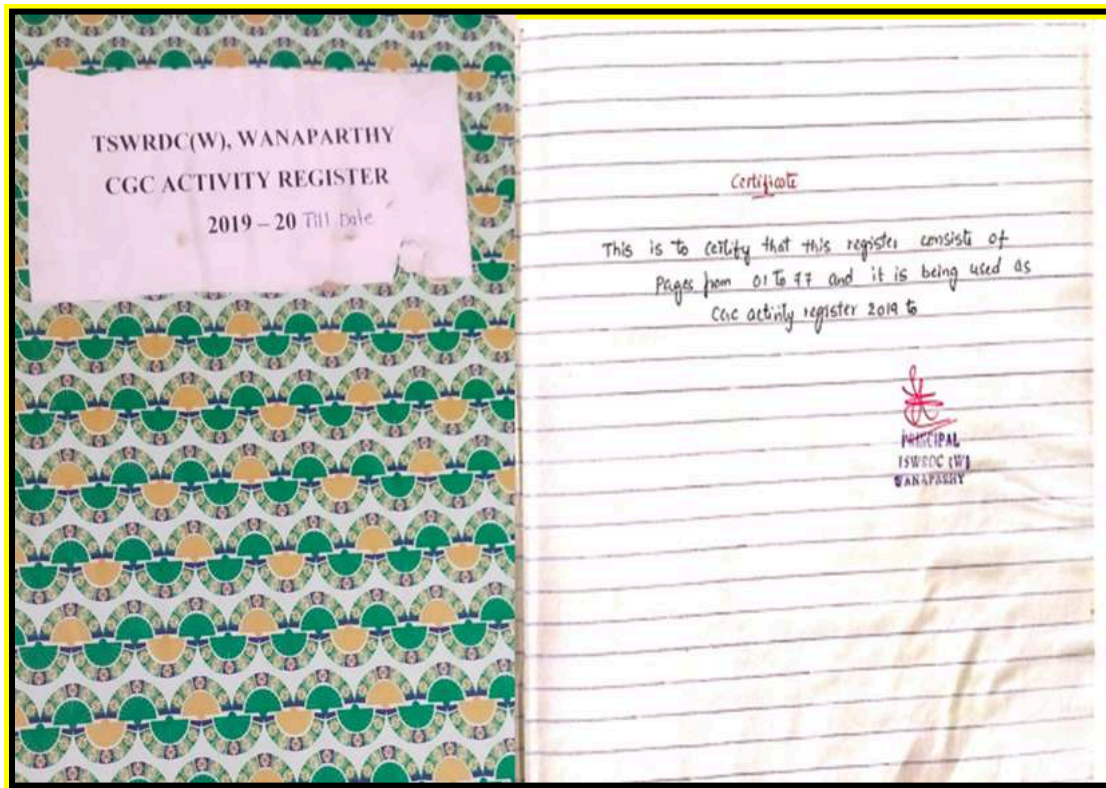 TSWRDC(W), WANAPARTHY
CGC ACTIVITY REGISTER
2019 – 20 Till Date
Certificate
This is to certify that this register consists of
Pages from 01 To 77 and it is being used as
CGC activity register 2019 to
PRINCIPAL
TSWRDC (W)
WANAPARHY